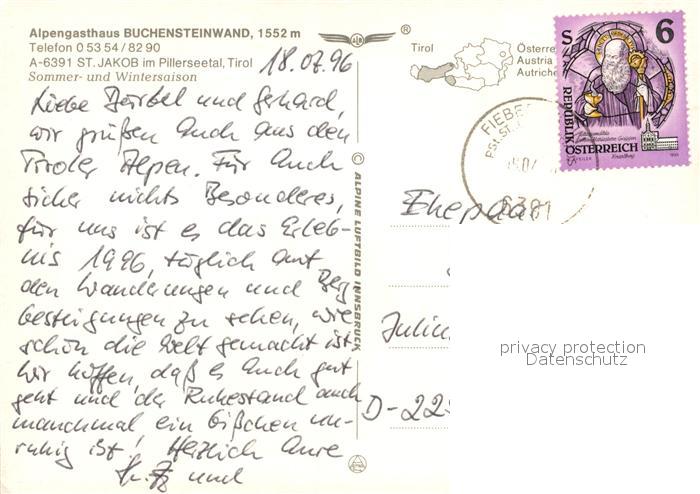 Alpengasthaus BUCHENSTEINWAND, 1552 m
Telefon 0 53 54 / 82 90
A-6391 ST. JAKOB im Pillerseetal, Tirol
Sommer- und Wintersaison
18.07.96
Liebe Bärbel und Gerhard,
wir grüßen Euch aus den
Tiroler Alpen. Für Euch
sicher nichts Besonderes,
für uns ist es das Erleb-
nis 1996, täglich auf
den Wanderungen und Berg
besteigungen zu sehen, wie
schön die Welt gemacht ist.
Wir hoffen, daß es Euch gut
geht und der Ruhestand auch
manchmal ein bißchen un-
ruhig ist! Herzlich Eure
und
® ALPINE LUFTBILD INNSBRUCK
Tirol
Österre
Austria
Autriche
FIEBER
6391
S 6
REPUBLIK
ÖSTERREICH
Ehepaar
Juliu
D-22
privacy protection
Datenschutz